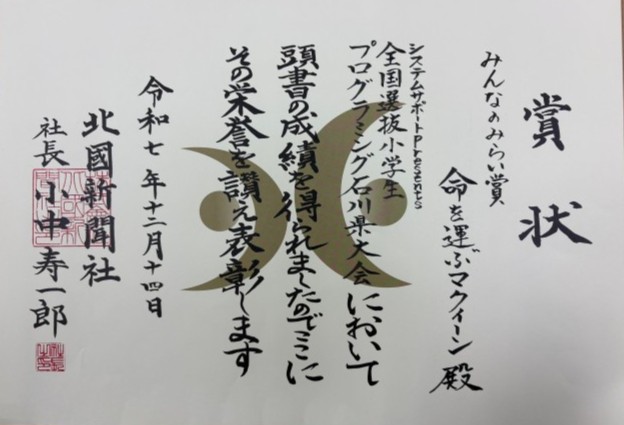 賞状
みんなのみらい賞
命を運ぶマクイーン殿
システムサポートpresents
全国選抜小学生
プログラミング石川県大会において
頭書の成績を得られましたのでここに
その栄誉を讃え表彰します
令和七年十二月十四日
北國新聞社
社長 小中寿一郎